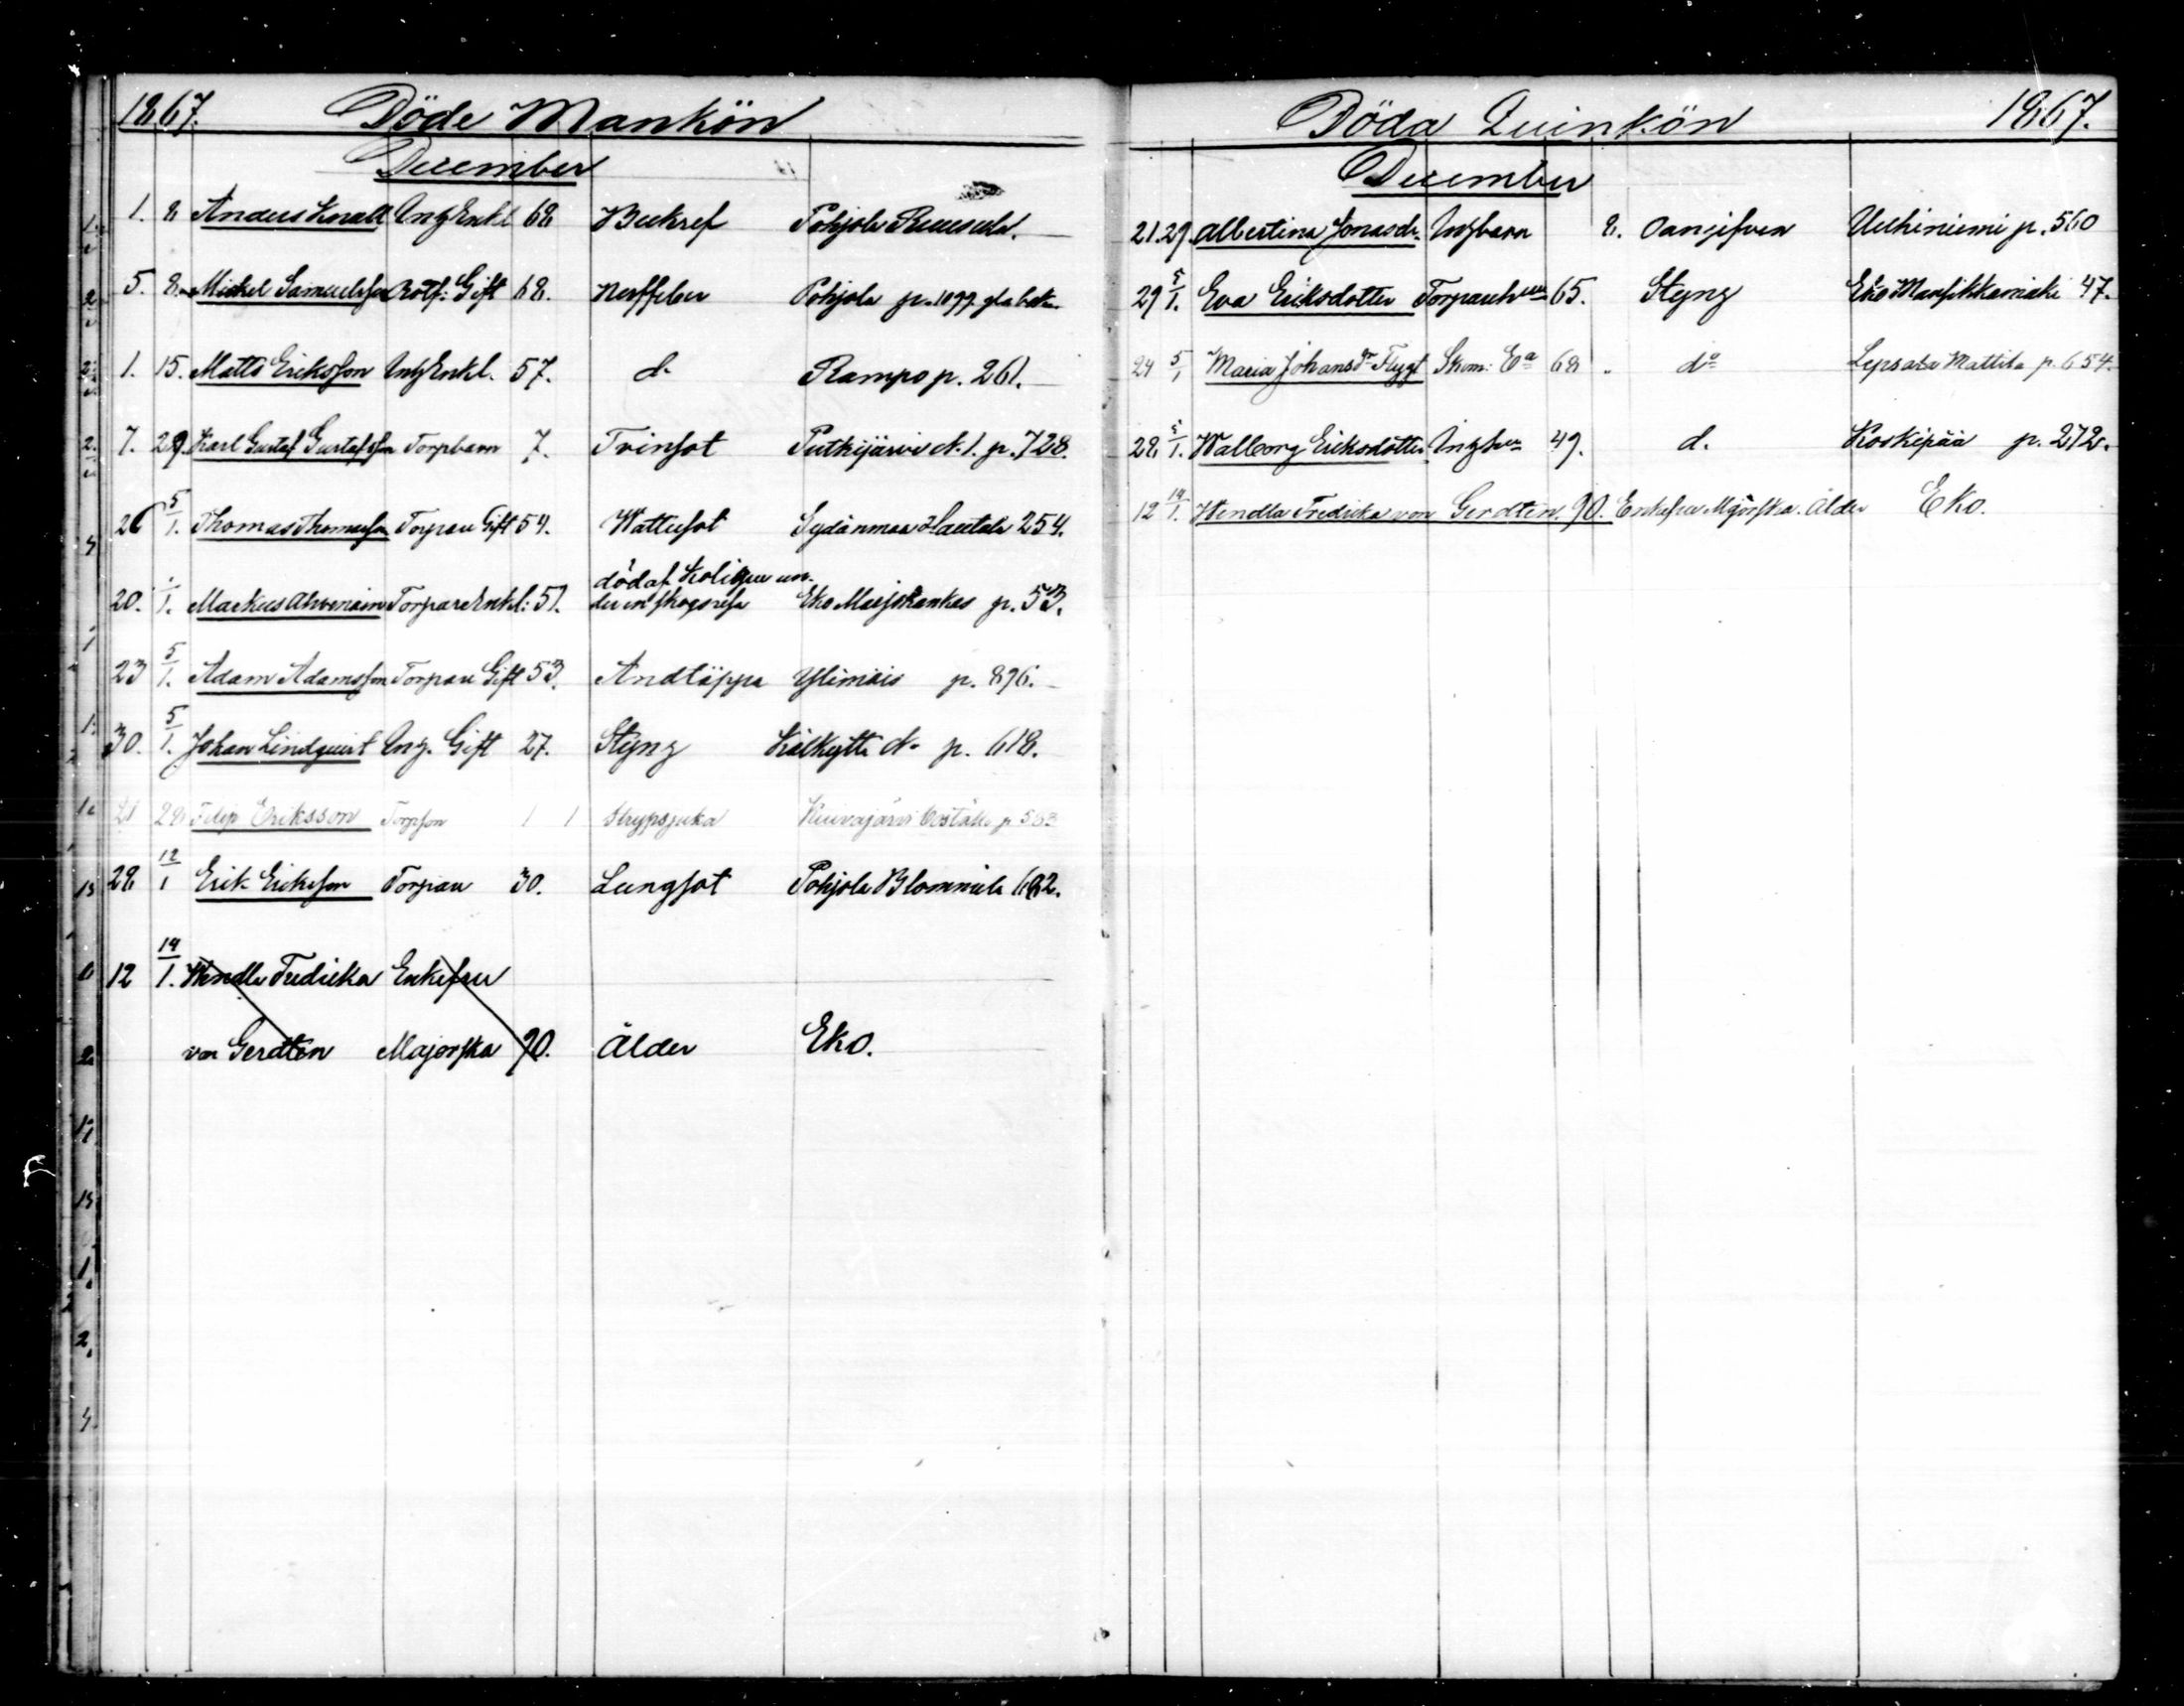 1867. Döde Mankön
December
1. 8 Anders Knall Inh Enkl 68 Pohjola
5. 8. Mickel Samuelsson Rotf: Gift 68. Pohjola p. 1099 gla bok.
1. 15. Matts Eriksson Inh Enkl. 57. d. Rampo p. 261.
7. 29. Karl Gustaf Gustafsson Torpbarn 7. Tvinsot Putkijärvi N. 1. p. 728.
26 5/1. Thomas Thomasson Torpare Gift 54. Wattusot Sydänmaa Hautala 254.
död af Kolik un-
20. 1/1. Markus Ahvenain Torpare Enkl: 51. der en skogsresa Eko p. 53.
23 5/1. Adam Adamsson Torpare Gift 53. Andtäppa Ylimäis p. 896.
30. 5/1. Johan Lindquist Inh. Gift 27. Styng Kälkytti N. p. 618.
21 28 Filip Eriksson Torpson 1 1 Strypsjuka Kuivajärvi p 563
28 12/1 Erik Eriksson Torpare 30. Lungsot Pohjola Blommila 662.
12 14/1. Wendla Fredrika Enkefru
von Gerdten Majorska 90. Ålder Eko.
Döda Quinkön 1867.
December
21. 29. Albertina Jonasdr. Inhbarn 8. Oangifven p. 560
29 5/1. Eva Eriksdotter Torpareh 65. Styng Eko Mansikkamäki 47.
24 5/1 Maria Johansdr Flygt 68 . do Lepsala Mattila p. 654.
28. 5/1. Walborg Eriksdotter 49. d. Koskipää p. 272.
12 14/1. Wendla Fredrika von Gerdten. 90. Enkefru Majorska. Ålder Eko.